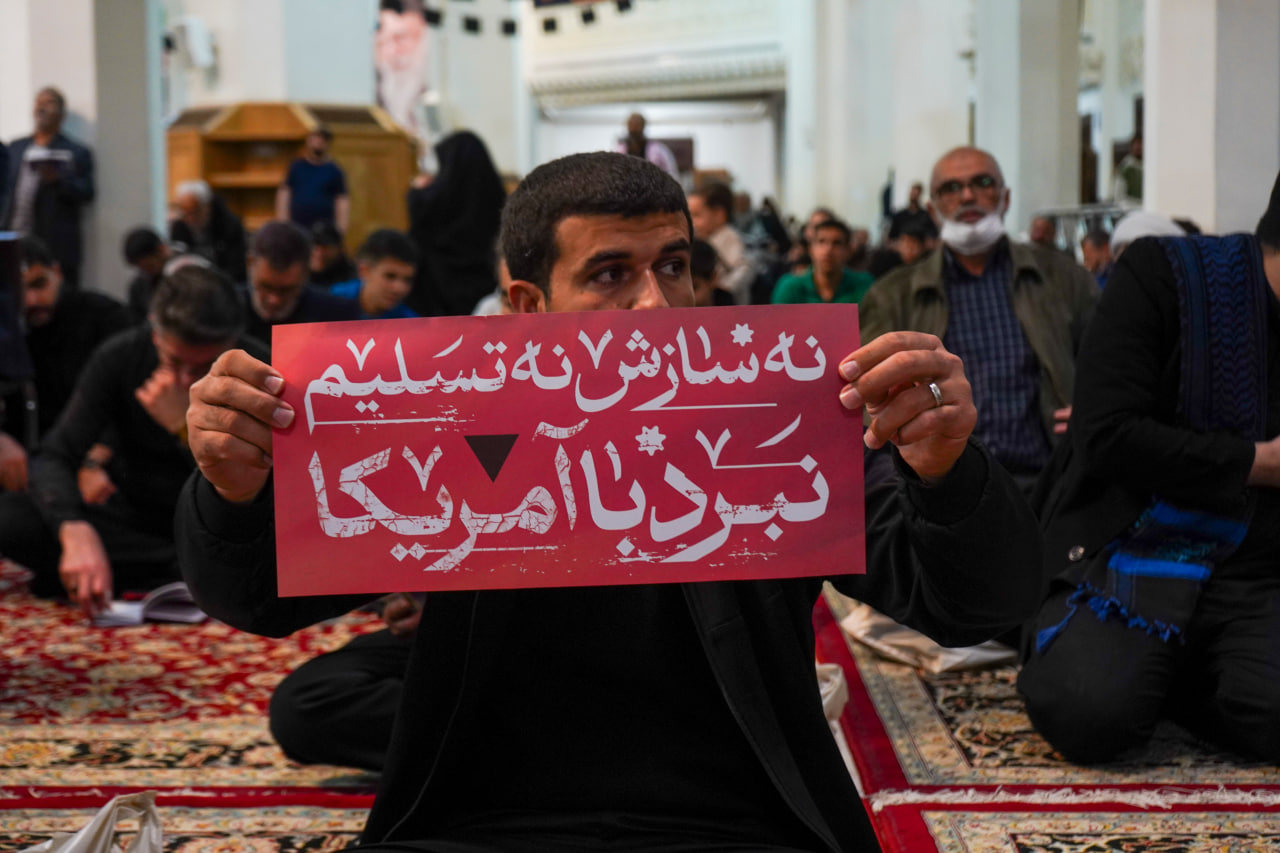 نه سازش نه تسلیم
نبرد با آمریکا